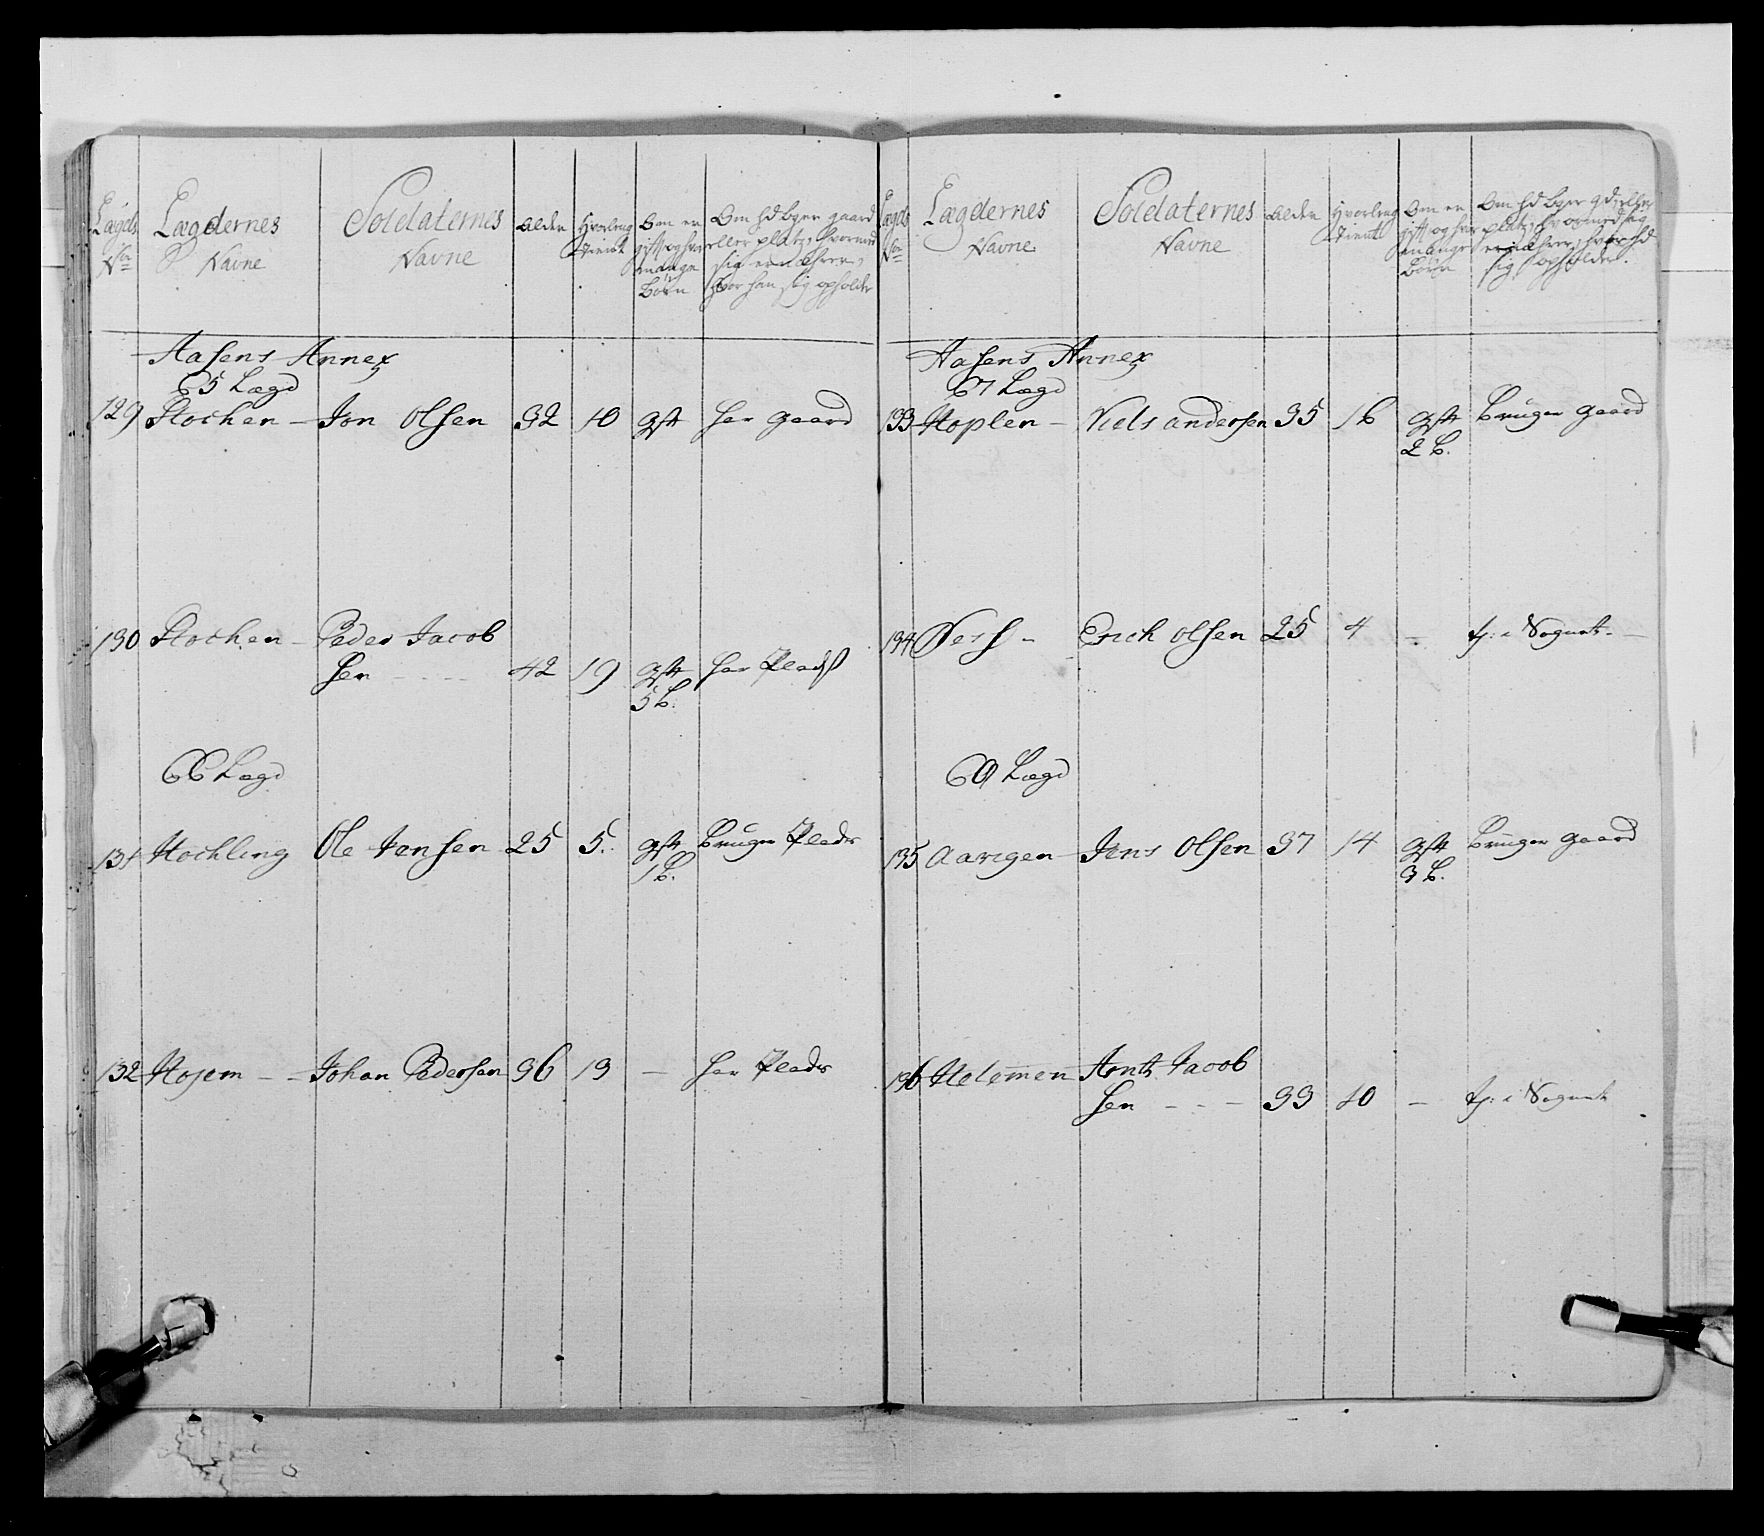 Lægds No
Lægdernes Navne
Soldaternes Navne
Alder
Hvorleng tient
Om er gift og hvor mange Børn
Om hd bger gaard eller platz, hvormed sig ernæhrer, hvor han sig opholder
Aasens Annex
65 Lægd
129 Stochen - Jon Olsen 32 10 gft har gaard
130 Stochen - Peder Jacob
sen - - - - 42 19 gft har Pladß
5 b.
66 Lægd
131 Hochling Ole Jensen 25 5. gft Bruger Plads
1 b.
132 Hojem - - Johan Pedersen 36 13 - har Plads
Lægds No
Lægdernes Navne
Soldaternes Navne
Alder
Hvorleng tientt
Om er gift og hvor mange Børn
Om hd bger gd eller platz, hvormed sig ernæhrer, hvor hd sig opholder.
Aasens Annex
67 Lægd
133 Hoplen - Niels andersen 35 16 gft Bruger gaard
2 b.
134 Ness - Erich olsen 25 4 - i Sognet -
Lægd
135 Aavigen - Jens Olsen 37 14 gft Bruger gaard
3 b.
136 Helemmen Arnt Jacob
sen - - - 33 10 - i Sognet